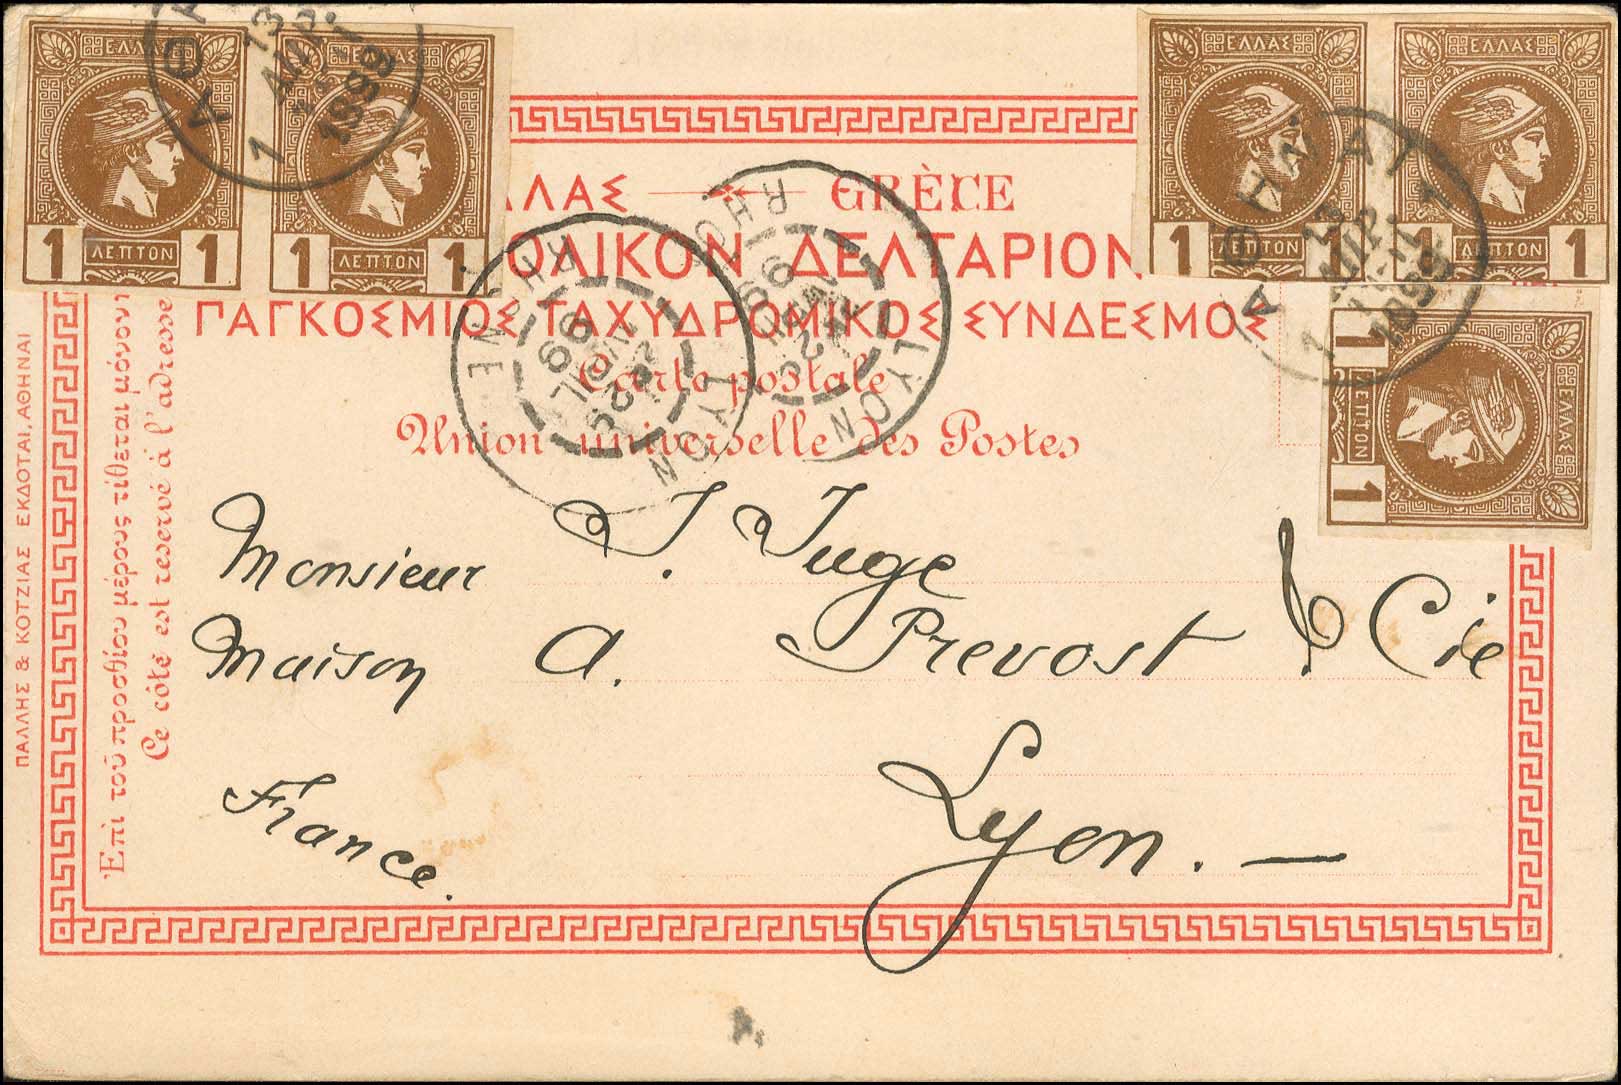 ΕΛΛΑΣ ΕΛΛΑΣ ΕΛΛΑΣ ΕΛΛΑΣ
1 ΛΕΠΤΟΝ 1 1 ΛΕΠΤΟΝ 1 1 ΛΕΠΤΟΝ 1 1 ΛΕΠΤΟΝ 1
ΕΛΛΑΣ
1 ΛΕΠΤΟΝ 1
13
ΑΠΡ.
1899
13
ΑΠΡ.
1899
ΛΑΣ GRÈCE
ΟΛΙΚΟΝ ΔΕΛΤΑΡΙΟΝ
ΠΑΓΚΟΣΜΙΟΣ ΤΑΧΥΔΡΟΜΙΚΟΣ ΣΥΝΔΕΣΜΟΣ
Carte postale
Union universelle des Postes
LYON RHONE
99
LYON RHONE
99
Monsieur J. Juge
Maison A. Prevost & Cie
Lyon. —
France.
ΠΑΛΛΗΣ & ΚΟΤΖΙΑΣ ΕΚΔΟΤΑΙ, ΑΘΗΝΑΙ
Ἐπὶ τοῦ προσθίου μέρους τίθεται μόνον
Ce côté est reservé á l'adresse